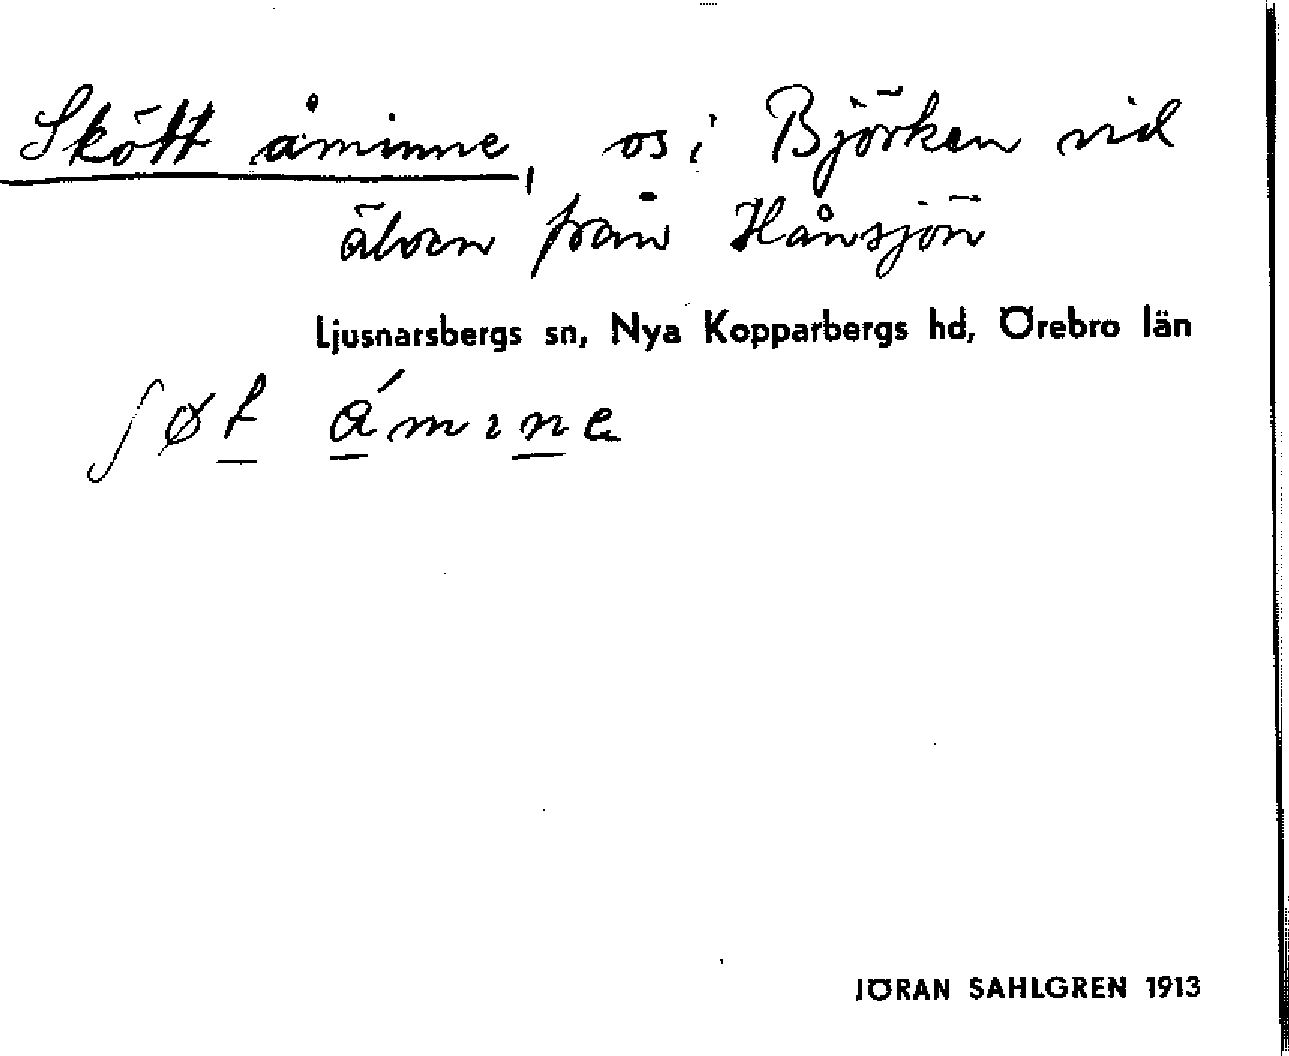 Skött åminne, os i Björken vid
älven från Hånsjön
Ljusnarsbergs sn, Nya Kopparbergs hd, Örebro län
ʃøt ámıne
JÖRAN SAHLGREN 1913